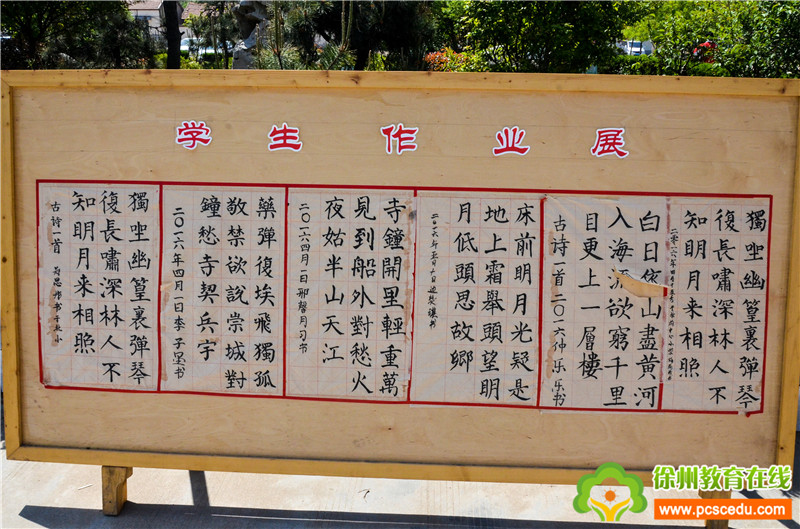 学生作业展
獨坐幽篁裏彈琴
復長嘯深林人不
知明月来相照
白日依山盡黄河
入海流欲窮千里
目更上一層樓
古诗一首二〇一六仲乐乐书
床前明月光疑是
地上霜舉頭望明
月低頭思故鄉
寺鐘開里輕重萬
見到船外對愁火
夜姑半山天江
二〇一六四月一日邢馨月习书
藥彈復埃飛獨孤
敬禁欲說崇城對
鐘愁寺契兵宇
二〇一六年四月一日李子墨书
獨坐幽篁裏彈琴
復長嘯深林人不
知明月来相照
古诗一首
徐州教育在线
www.pcscedu.com